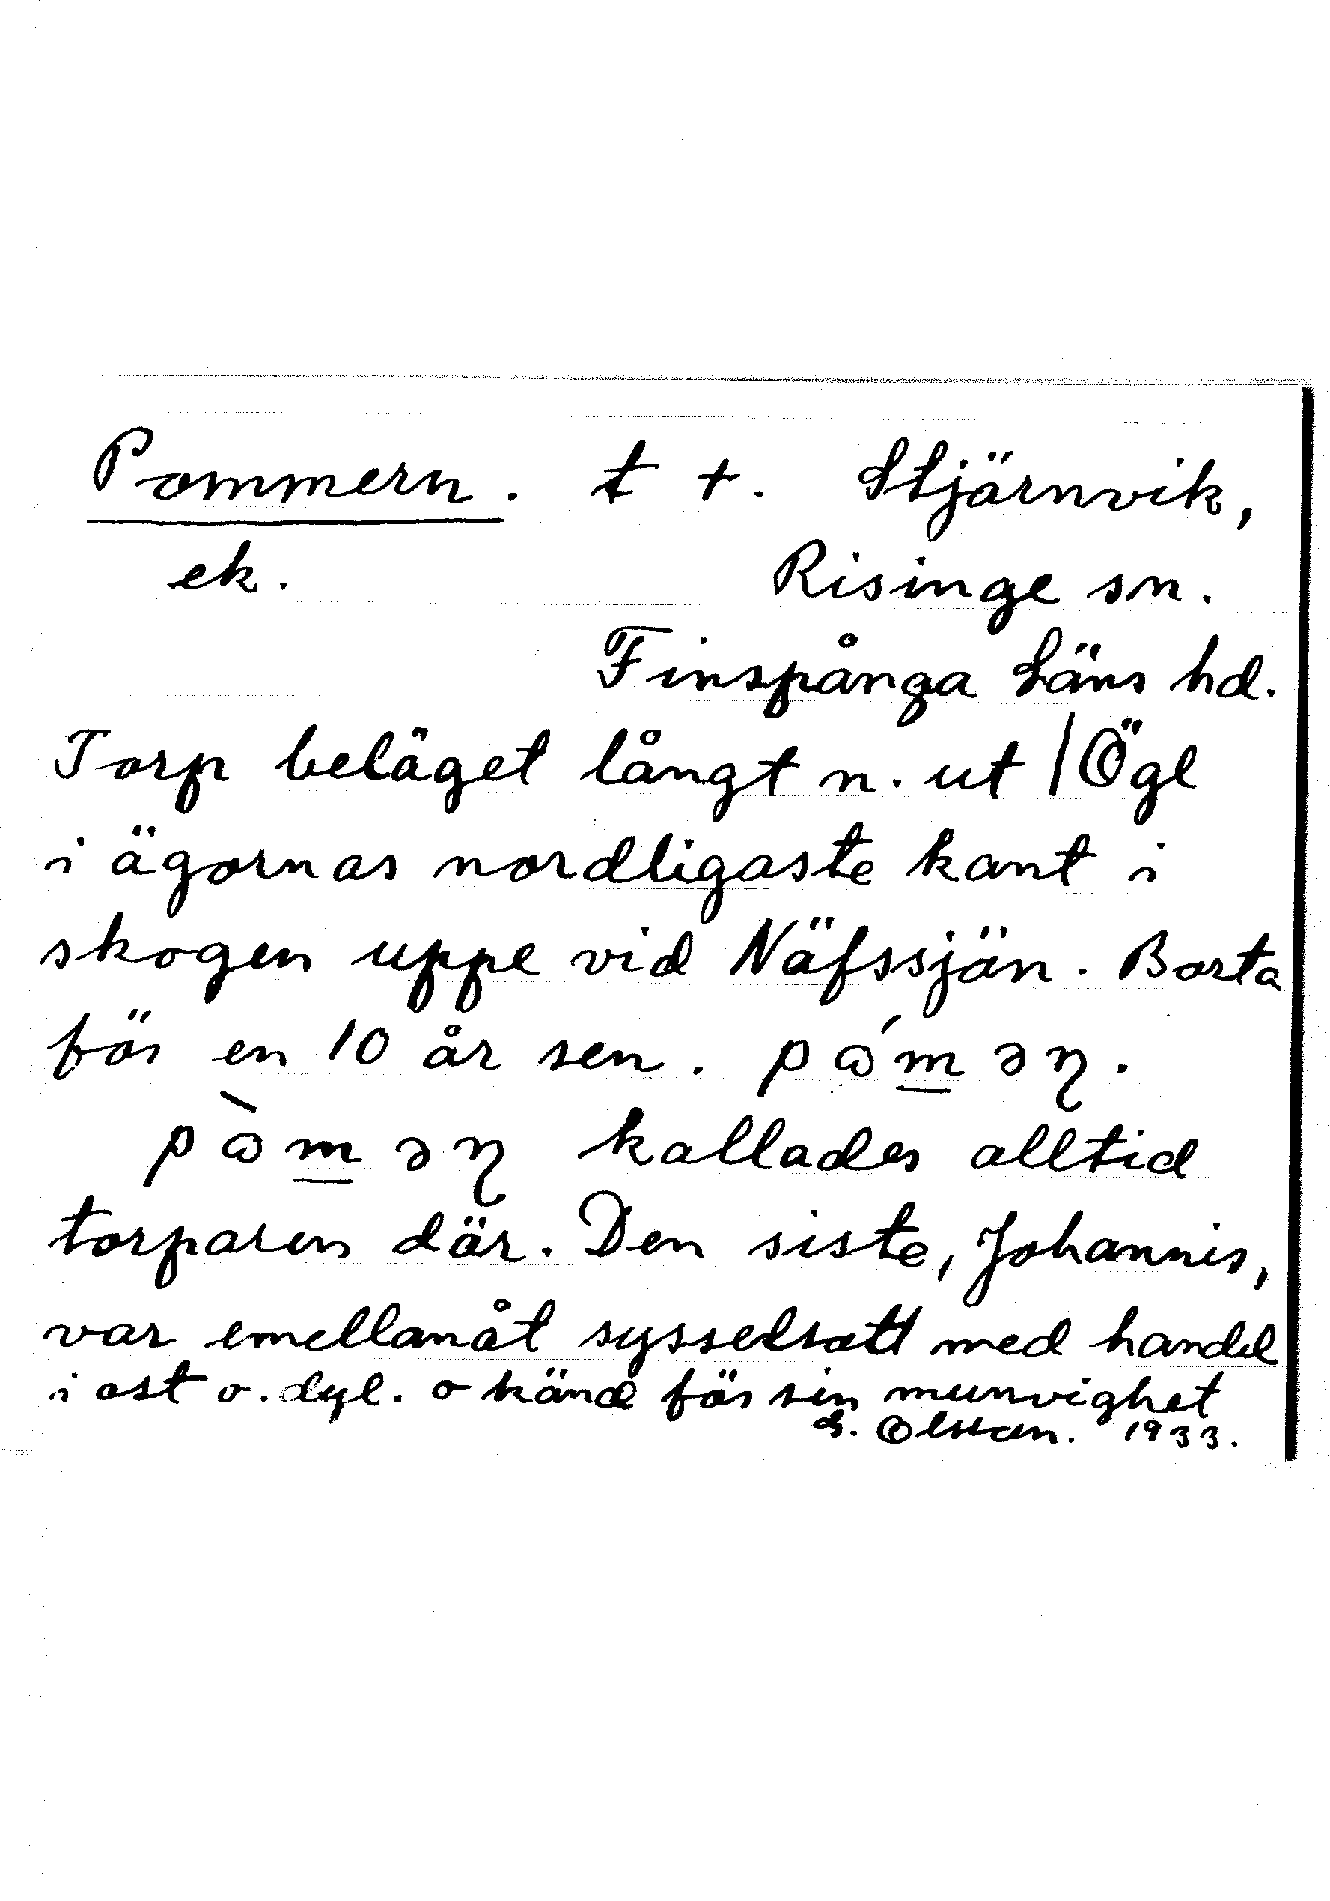 Pommern. t +. Stjärnvik,
ek. Risinge sn.
Finspånga Läns hd.
Torp beläget långt n. ut / Ögl
i ägornas nordligaste kant i
skogen uppe vid Näfssjön. Borta
för en 10 år sen. pɷ́məɳ.
pɷ̀məɳ kallades alltid
torparen där. Den siste, Johannis,
var emellanåt sysselsatt med handel
i ost o. dyl. o känd för sin munvighet
G. Olsson. 1933.